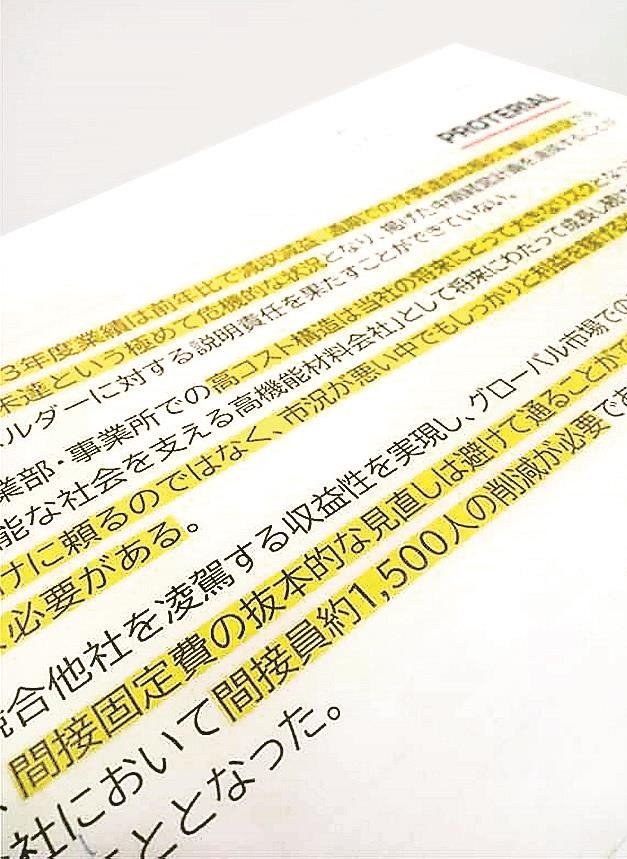 PROTERIAL
3年度業績は前年比で減収減益、通期での予算達成も極めて厳しい状況
未達という極めて危機的な状況となり、掲げた中期経営計画を達成することが
ルダーに対する説明責任を果たすことができていない。
業部・事業所での高コスト構造は当社の将来にとって大きなリスクとなっ
能な社会を支える高機能材料会社」として将来にわたって成長し続け
けに頼るのではなく、市況が悪い中でもしっかりと利益を確保する
、必要がある。
競合他社を凌駕する収益性を実現し、グローバル市場での
、間接固定費の抜本的な見直しは避けて通ることがで
社において間接員約1,500人の削減が必要であ
こととなった。